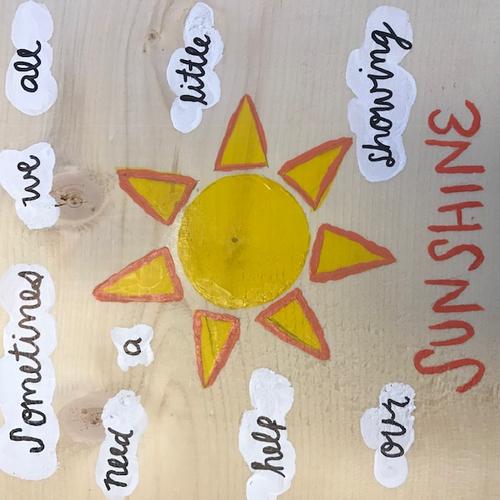 Sometimes we all
need a little
help showing
our
SUNSHINE